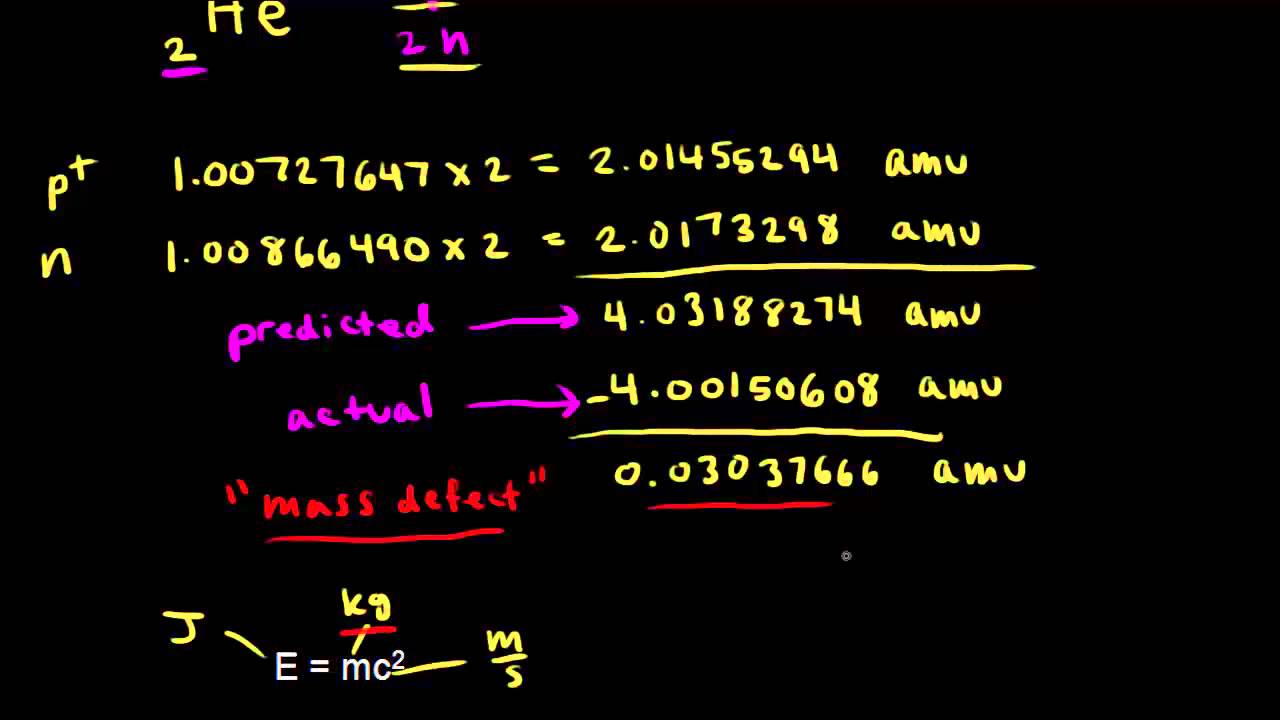 He
2
2 n
p+ 1.00727647 x 2 = 2.01455294 amu
n 1.00866490 x 2 = 2.0173298 amu
predicted → 4.03188274 amu
actual → -4.00150608 amu
"mass defect" 0.03037666 amu
kg
J
m
E = mc²
s